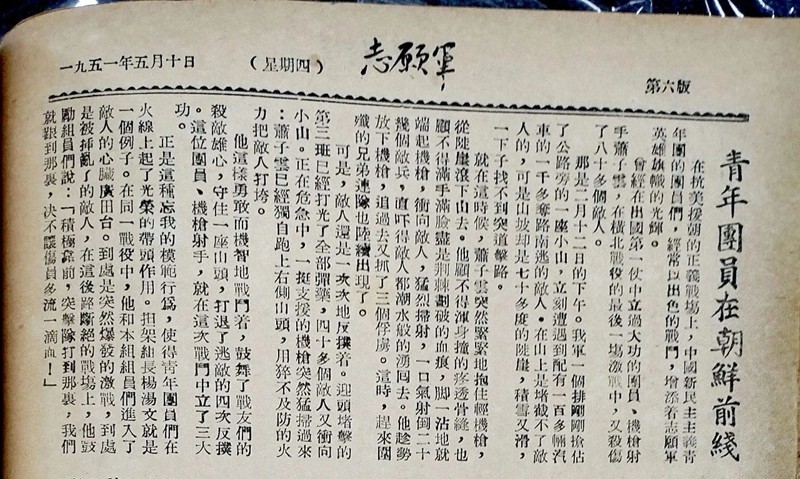 一九五一年五月十日
（星期四）
志願軍
第六版
青年團員在朝鮮前綫
在抗美援朝的正義戰場上，中國新民主主義青
年團的團員們，經常以出色的戰鬥，增添着志願軍
英雄旗幟的光輝。
曾經在出國第一仗中立過大功的團員、機槍射
手蕭子雲，在橫北戰役的最後一場激戰中，又殺傷
了八十多個敵人。
那是二月十二日的下午。我軍一個排剛剛搶佔
了公路旁的一座小山，立刻遭遇到配有一百多輛汽
車的一千多奪路南逃的敵人。在山上是堵截不了敵
人的，可是山坡却是七十多度的陡崖，積雪又滑，
一下子找不到突道擊路。
就在這時候，蕭子雲突然緊緊地抱住輕機槍，
從陡崖滾下山去。他顧不得渾身撞的疼透骨縫，也
顧不得滿手滿臉盡是荆棘劃破的血痕，脚一沾地就
端起機槍，衝向敵人，猛烈掃射，一口氣射倒二十
幾個敵兵，直吓得敵人都潮水般的湧囘去。他趁勢
放下機槍，追過去又抓了三個俘虜。這時，趕來圍
殲的兄弟連隊也陸續出現了。
可是，敵人還是一次次地反撲着。迎頭堵擊的
第三班已經打光了全部彈藥，四十多個敵人又衝向
小山。正在危急中，一挺支援的機槍突然猛掃過來
：蕭子雲已經獨自跑上右側山頭，用猝不及防的火
力把敵人打垮。
他這樣勇敢而機智地戰鬥着，鼓舞了戰友們的
殺敵雄心，守住一座山頭，打退了逃敵的四次反撲
。這位團員、機槍射手，就在這次戰鬥中立了三大
功。
正是這種忘我的模範行爲，使得青年團員們在
火線上起了光榮的帶頭作用。担架組長楊湯文就是
一個例子。在同一戰役中，他和本組組員們進入了
敵人的心臟廣田台。到處是突然爆發的激戰，到處
是被掃亂了的敵人，在這後路斷絕的戰場上，他鼓
勵組員們說：「積極靠前，突擊隊打到那裏，我們
就跟到那裏，決不讓傷員多流一滴血！」